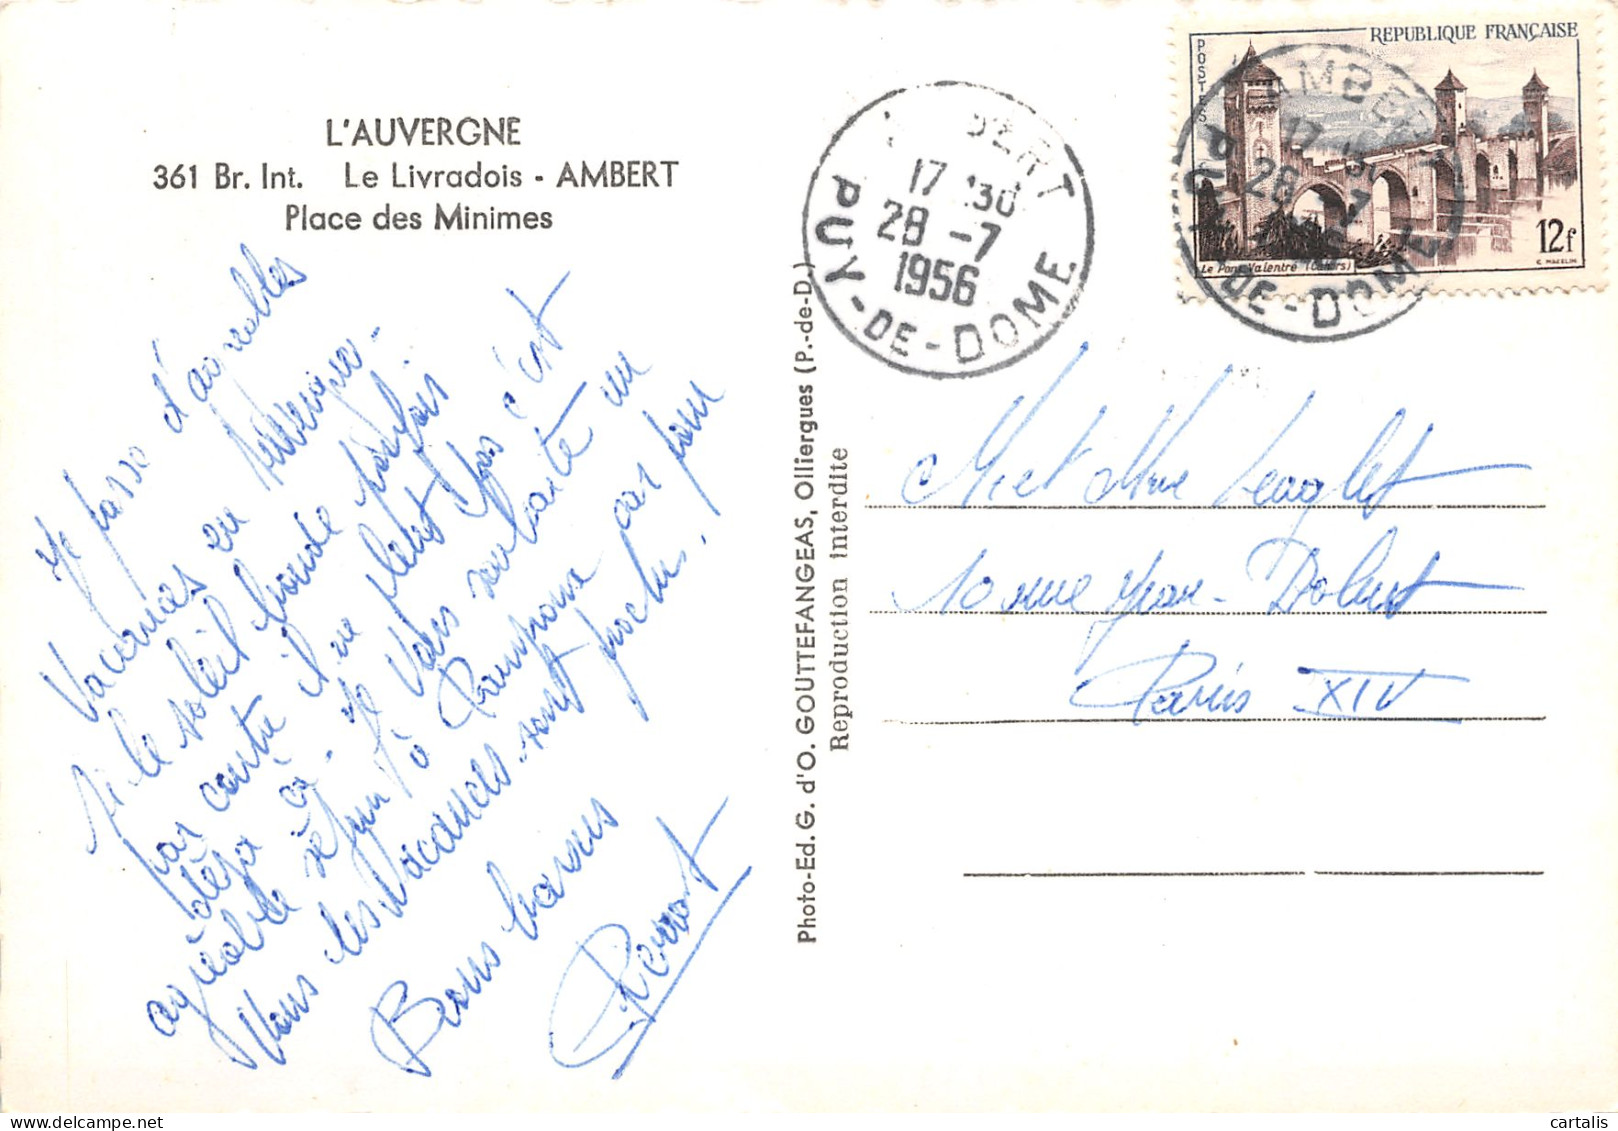 L'AUVERGNE
361 Br. Int. Le Livradois - AMBERT
Place des Minimes
Je passe d'agréables
Vacances en Auvergne -
si le soleil boude parfois
par contre il ne pleut pas c'est
déjà ça - Je vous souhaite un
agréable séjour à car pour
Vous les Vacances sont proches.
Bons baisers
Pierrot
Photo-Ed. G. d'O. GOUTTEFANGEAS, Olliergues (P.-de-D.)
Reproduction interdite
17 30
28 -7
1956
PUY-DE-DOME
REPUBLIQUE FRANÇAISE
POSTES
12f
Le Pont Valentré (Cahors)
C. MAZELIN
AMBERT
17 30
28 -7
PUY-DE-DOME
M et Mme Lenglet
10 rue Jean - Dolent
Paris XIV
cartalis